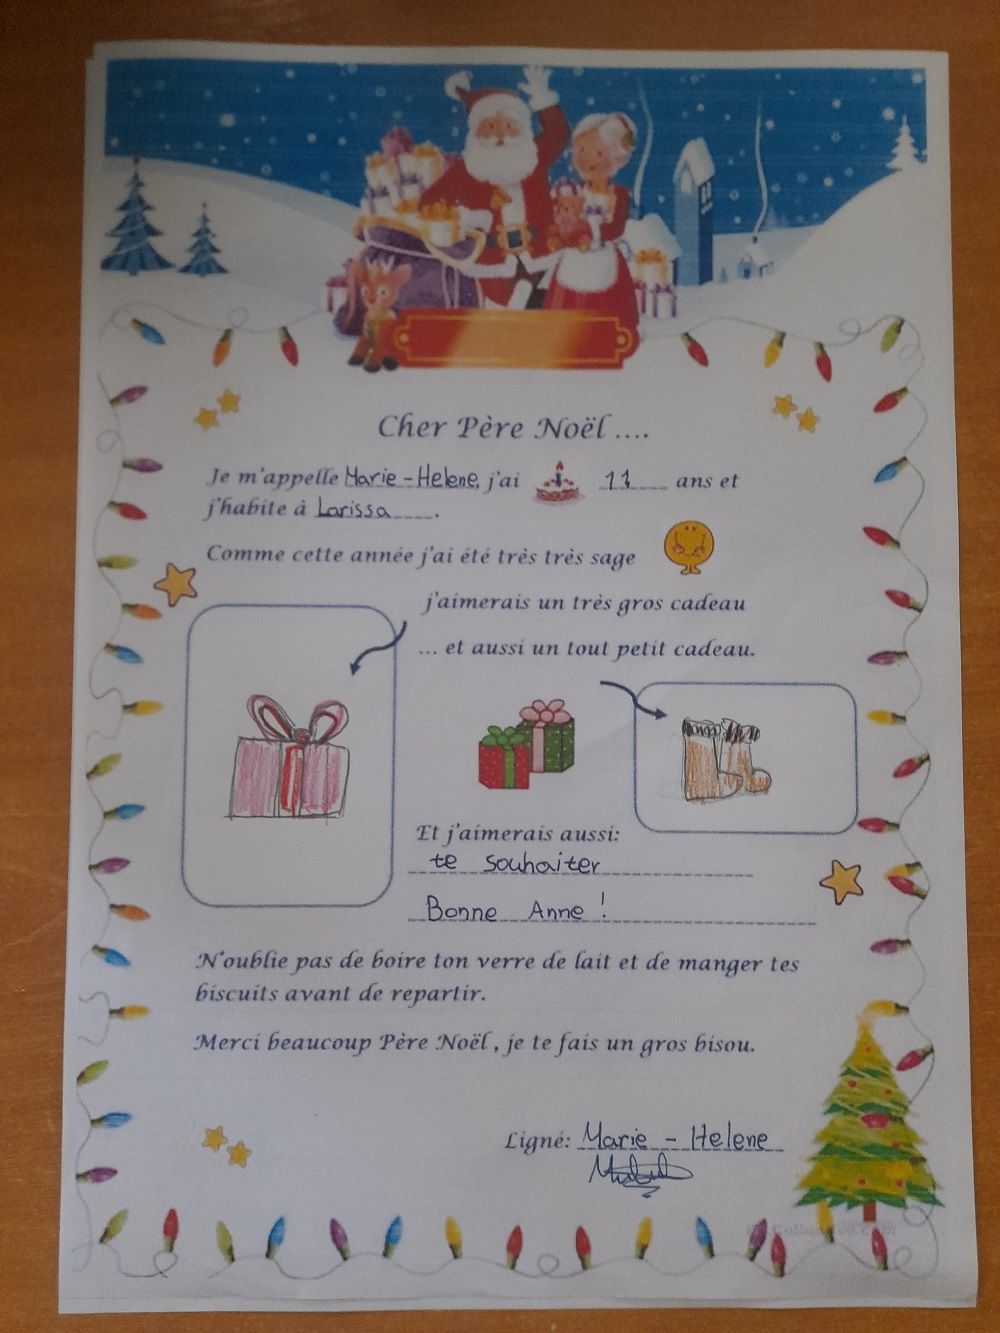 Cher Père Noël ....
Je m'appelle Marie-Helene, j'ai 11 ans et
j'habite à Larissa.
Comme cette année j'ai été très très sage
j'aimerais un très gros cadeau
... et aussi un tout petit cadeau.
Et j'aimerais aussi:
te souhaiter
Bonne Anne !
N'oublie pas de boire ton verre de lait et de manger tes
biscuits avant de repartir.
Merci beaucoup Père Noël, je te fais un gros bisou.
Ligné: Marie - Helene